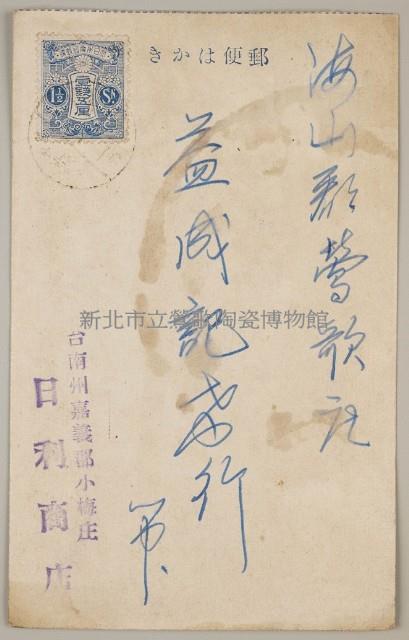 郵便はかき
大日本帝國郵便
壹錢五厘
1½ Sn
海山郡鶯歌庄
益成記茶行
第
新北市立鶯歌陶瓷博物館
台南州嘉義郡小梅庄
日利商店